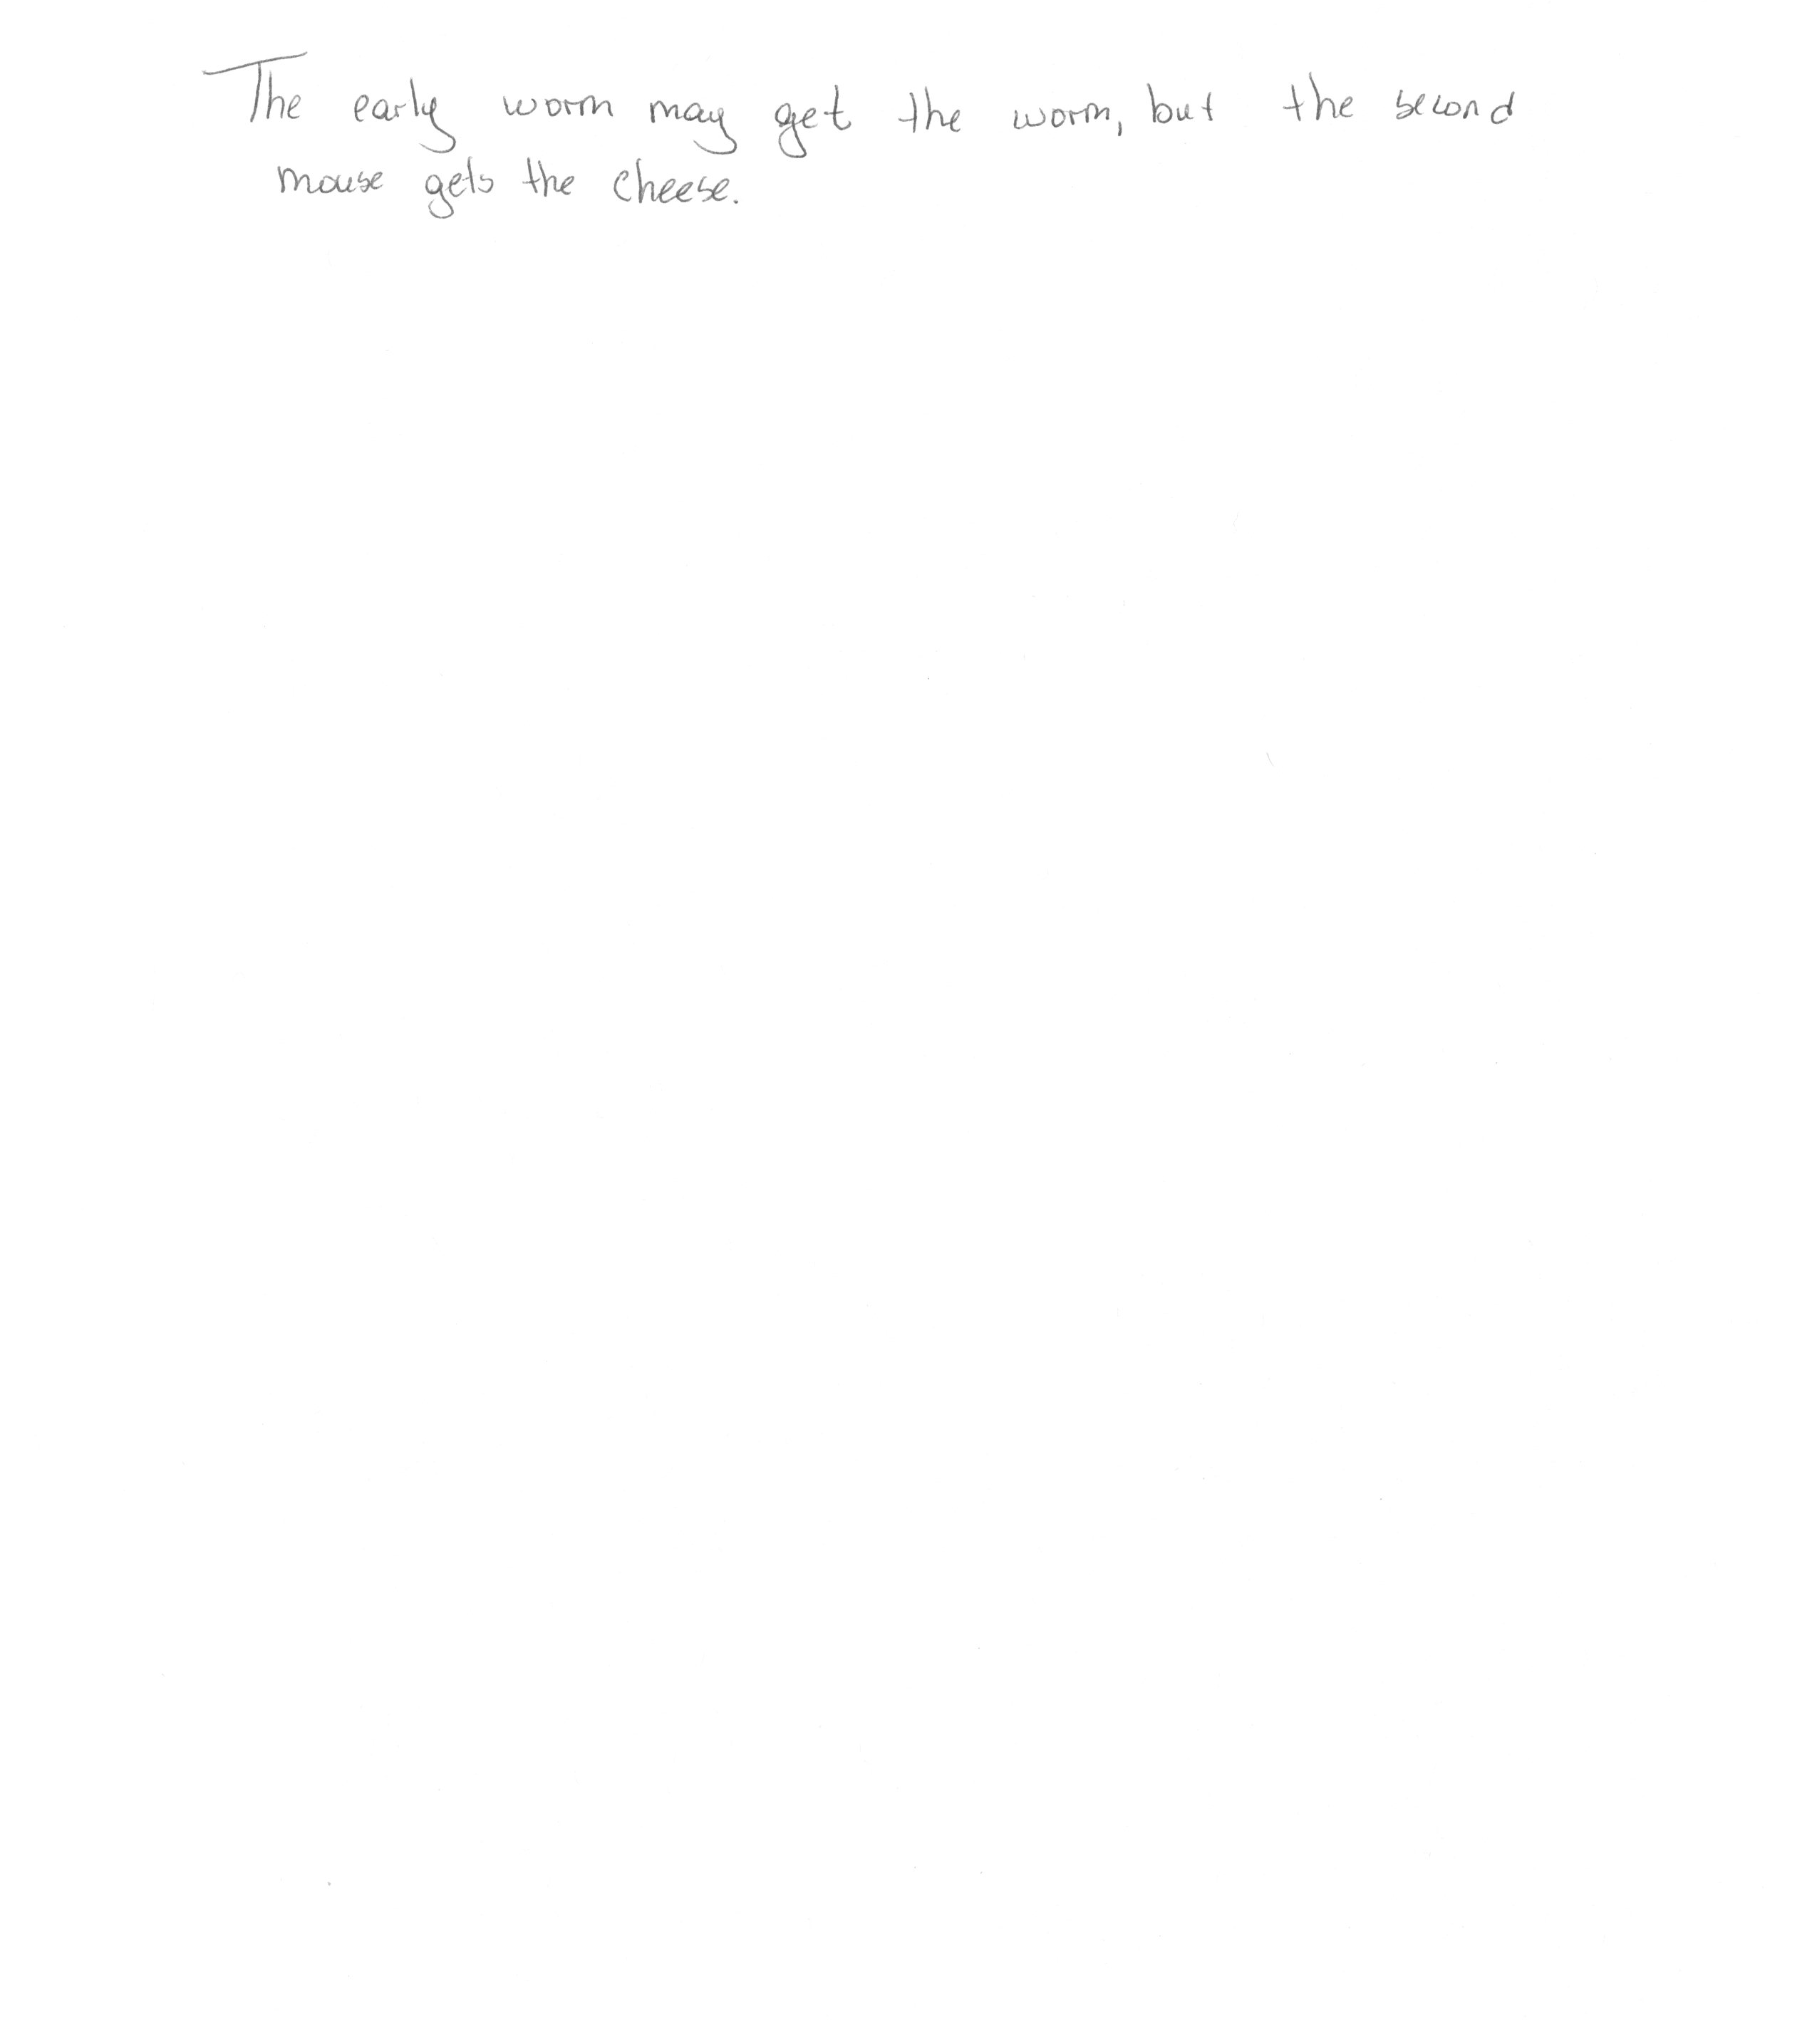 The early worm may get the worm, but the second
mouse gets the cheese.